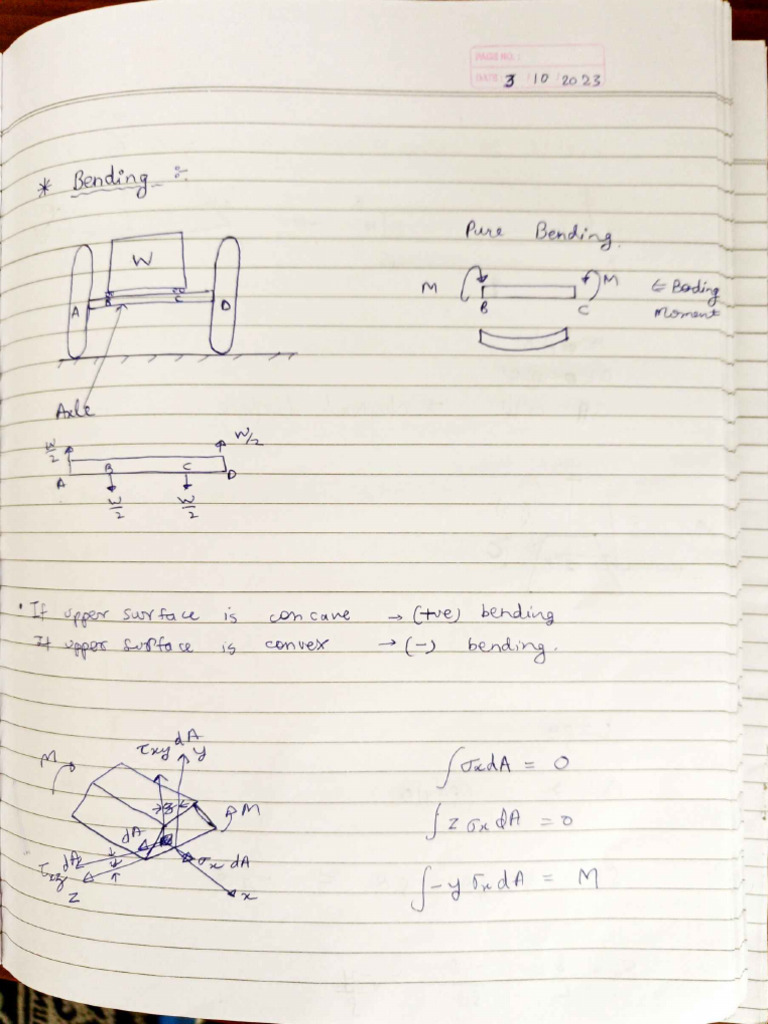 PAGE NO. :
DATE : 3 / 10 / 2023
* Bending :-
W
A B C D
Axle
Pure Bending.
M M
B C
← Bending Moment
W/2 W/2
A B C D
W/2 W/2
• If upper surface is concave → (+ve) bending
If upper surface is convex → (-) bending.
τxy dA
y
M
z
M
dA
τxz dA
y
σx dA
z
x
∫ σx dA = 0
∫ z σx dA = 0
∫ -y σx dA = M